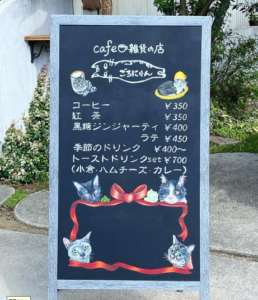 cafe 雑貨の店
ごろにゃん
コーヒー ¥350
紅茶 ¥350
黒糖ジンジャーティ ¥400
ラテ ¥450
季節のドリンク ¥400〜
トーストドリンクset ¥700
(小倉・ハムチーズ・カレー)